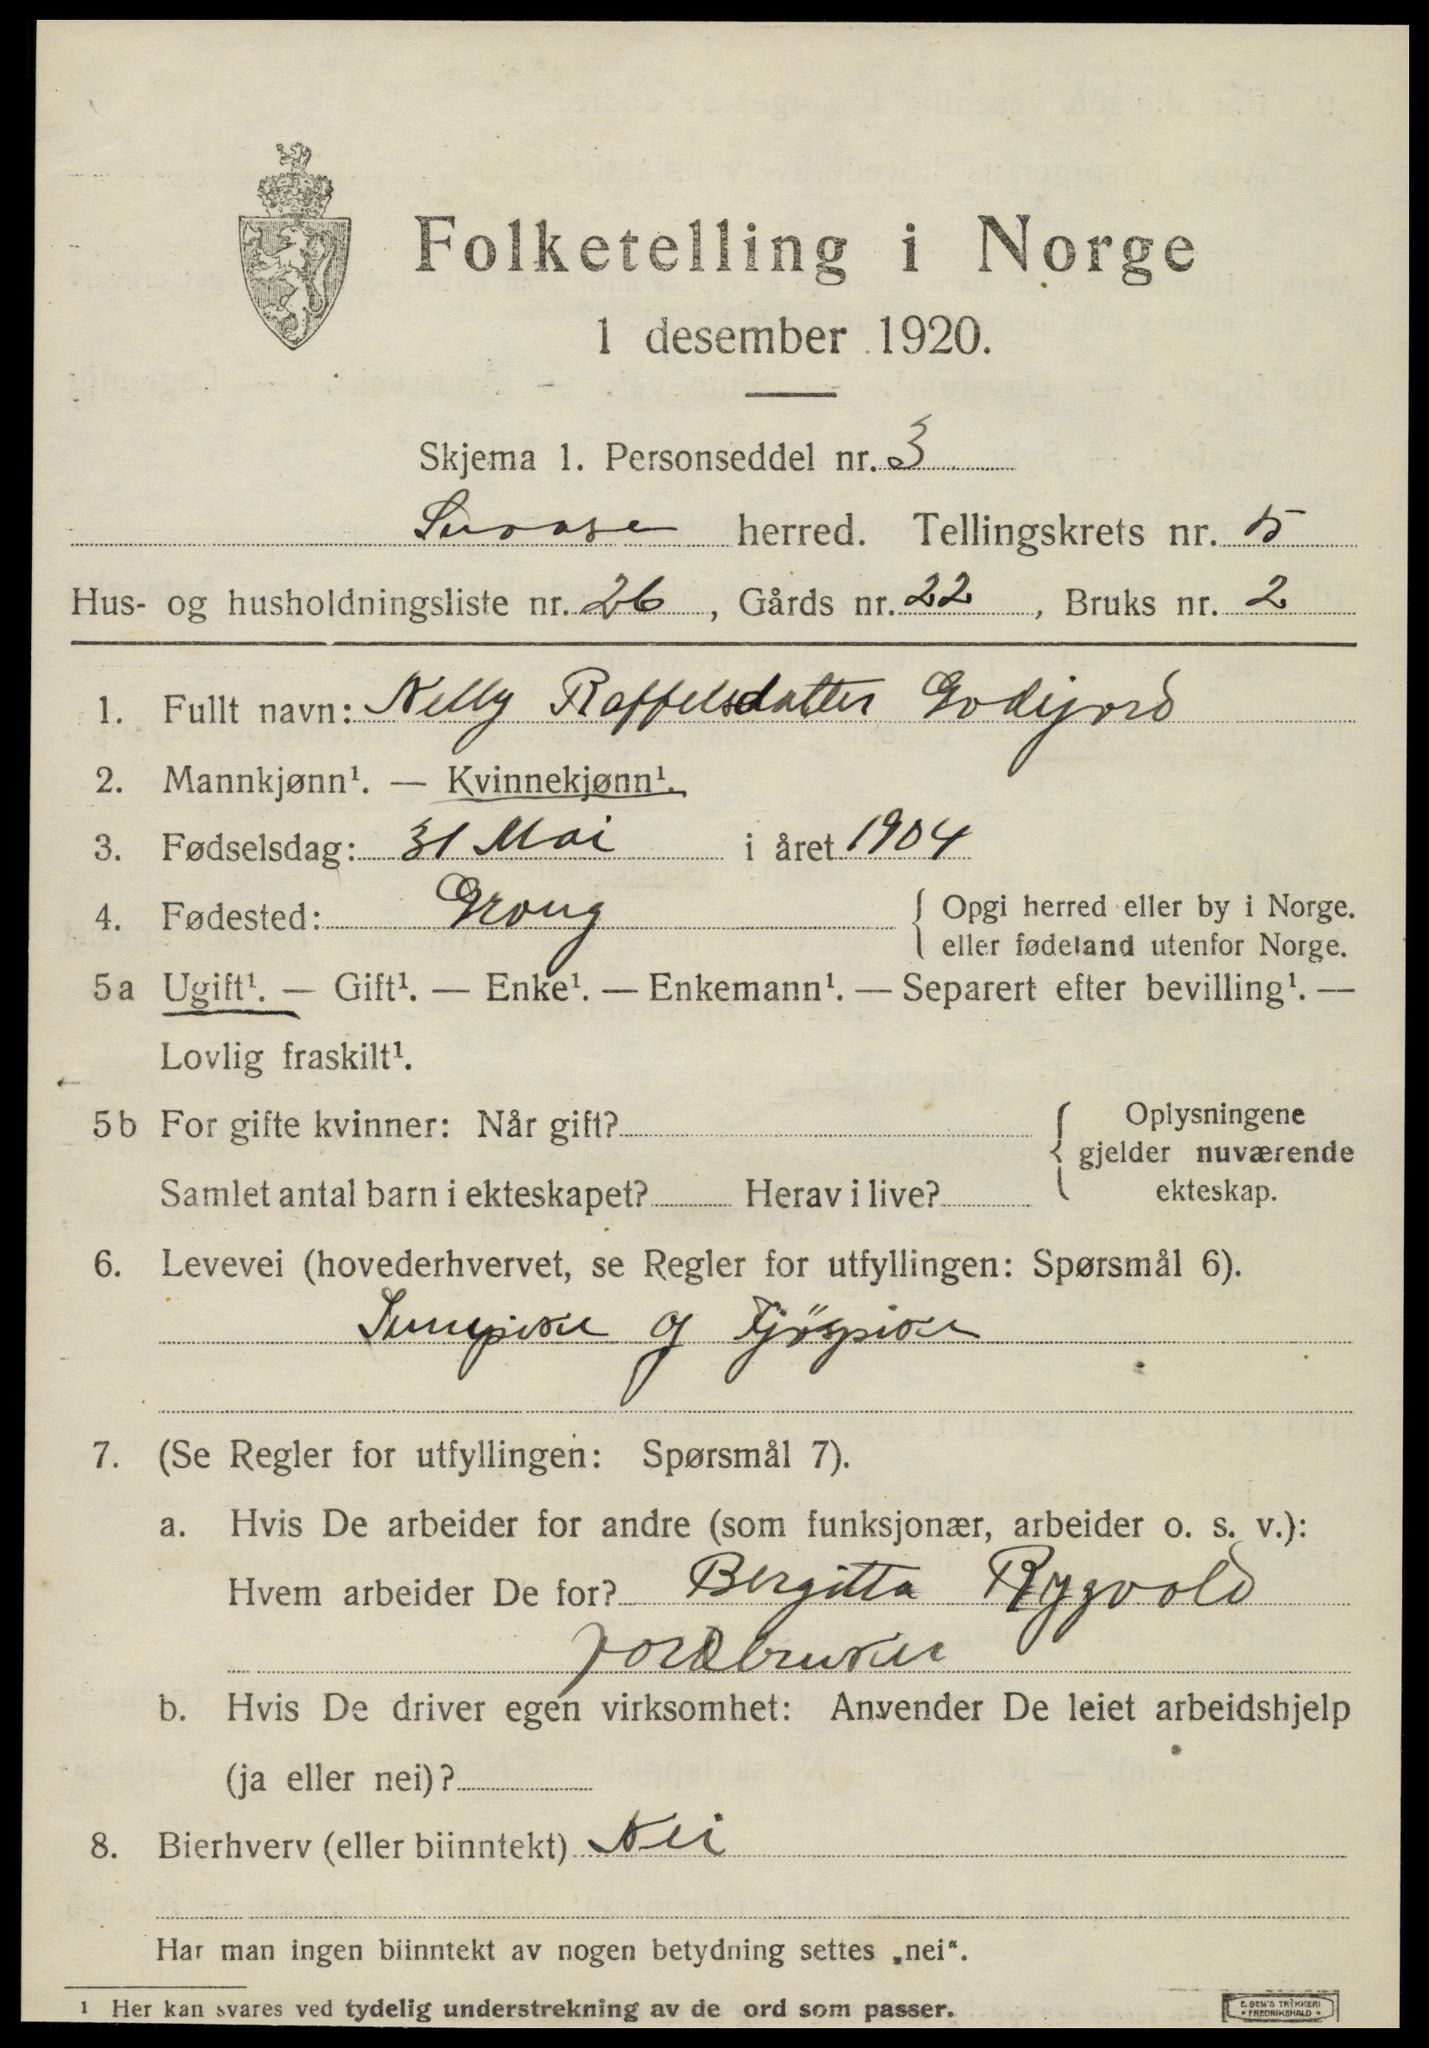 Folketelling i Norge
1 desember 1920.
Skjema 1. Personseddel nr. 3
Snaase herred. Tellingskrets nr. 5
Hus- og husholdningsliste nr. 26, Gårds nr. 22, Bruks nr. 2
1. Fullt navn: Nelly Raffelsdatter Godejord
2. Mannkjønn¹. — Kvinnekjønn¹.
3. Fødselsdag: 31 Mai i året 1904
4. Fødested: Grong { Opgi herred eller by i Norge.
eller fødeland utenfor Norge.
5a Ugift¹. — Gift¹. — Enke¹. — Enkemann¹. — Separert efter bevilling¹. —
Lovlig fraskilt¹.
5b For gifte kvinner: Når gift? { Oplysningene
gjelder nuværende
ekteskap.
Samlet antal barn i ekteskapet? Herav i live?
6. Levevei (hovederhvervet, se Regler for utfyllingen: Spørsmål 6).
og Fjøspike
7. (Se Regler for utfyllingen: Spørsmål 7).
a. Hvis De arbeider for andre (som funksjonær, arbeider o. s. v.):
Hvem arbeider De for? Bergitta Rygvold
Jordbruker
b. Hvis De driver egen virksomhet: Anvender De leiet arbeidshjelp
(ja eller nei)?
8. Bierhverv (eller biinntekt) Nei
Har man ingen biinntekt av nogen betydning settes „nei“.
1 Her kan svares ved tydelig understrekning av de ord som passer.
E. SEM'S TRYKKERI
FREDRIKSHALD